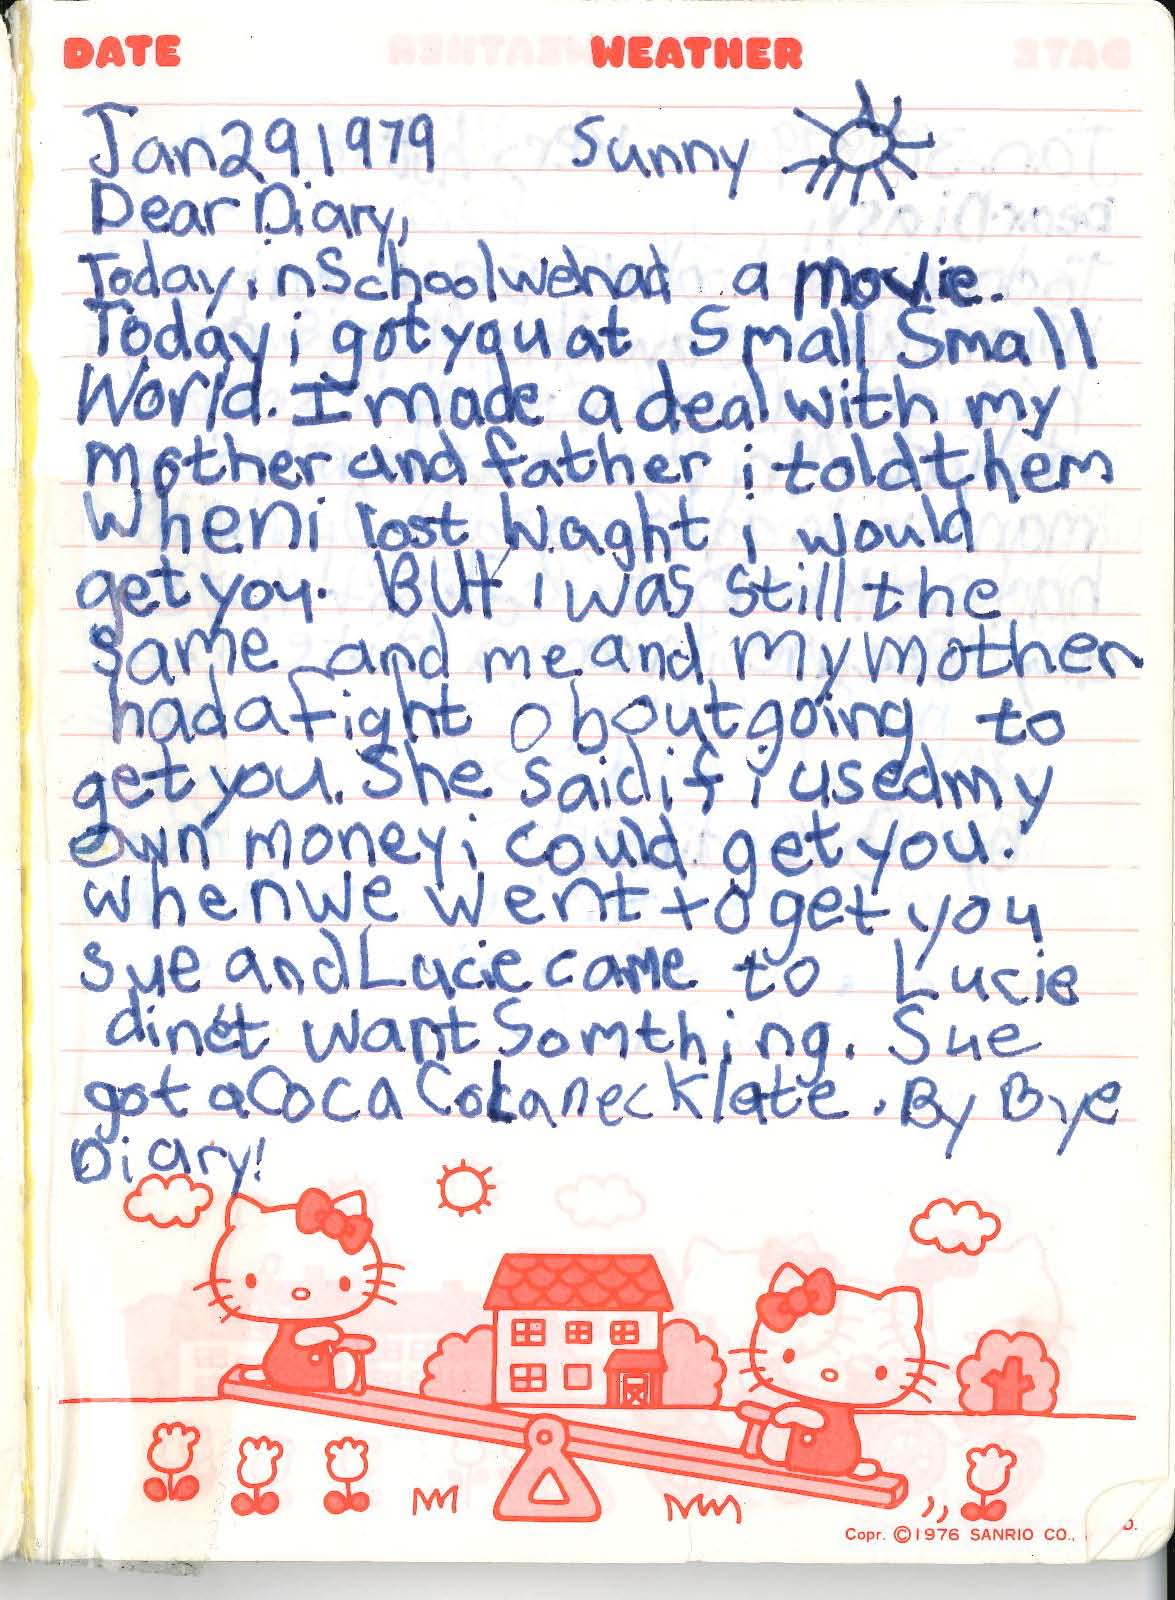 DATE WEATHER
Jan 29 1979 Sunny
Dear Diary,
Today in School we had a movie.
Today i got you at Small Small
World. I made a deal with my
mother and father i told them
when i lost waght i would
get you. But i was still the
same and me and my mother
had a fight obout going to
get you. She said if i used my
own money i could get you.
when we went to get you
Sue and Lucie came to Lucie
dinet want Somthing. Sue
got a Coca Cola necklate. By Bye
Diary!
Copr. ©1976 SANRIO CO.,